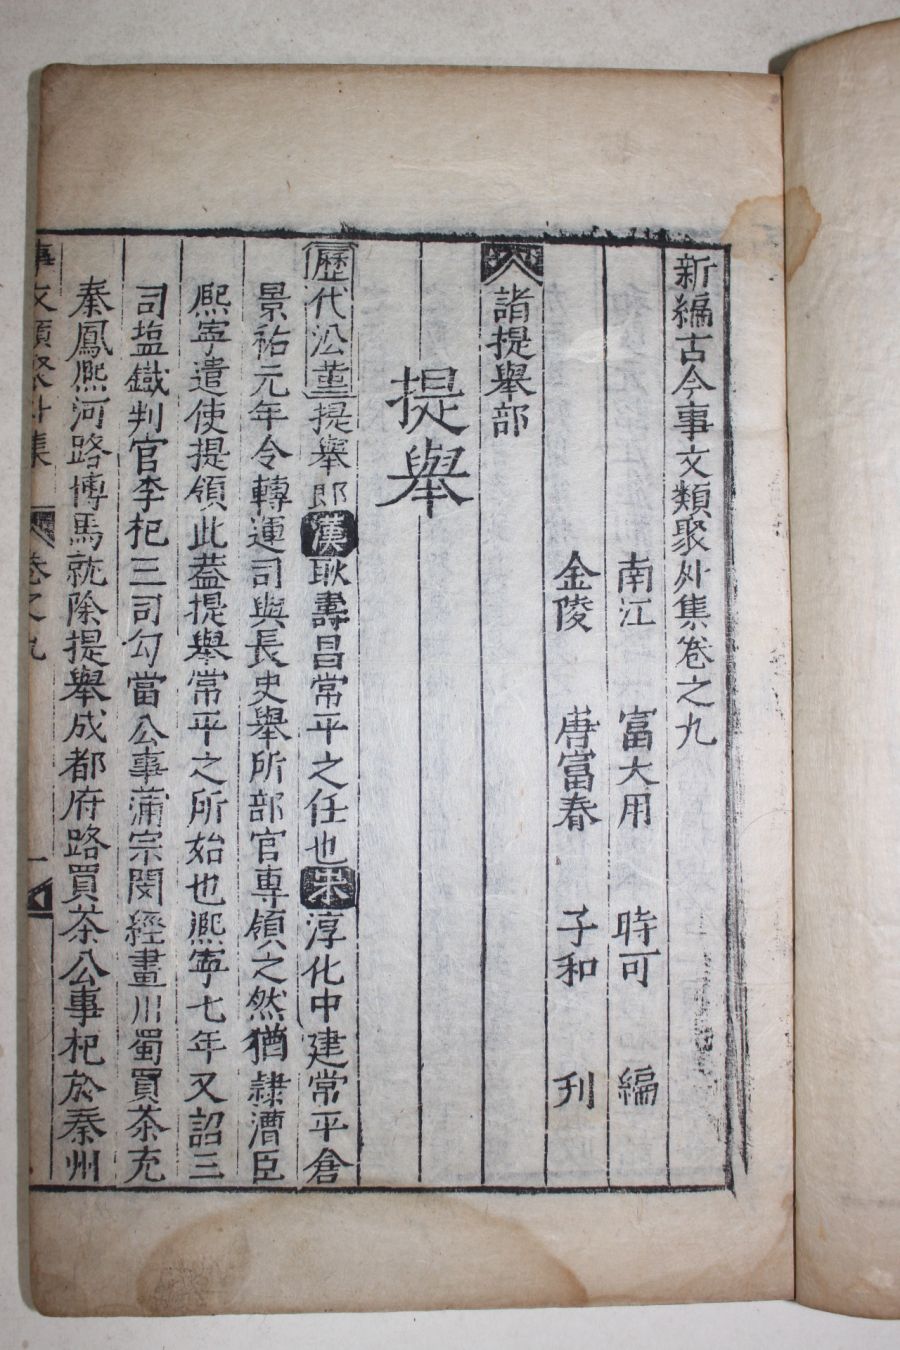 新編古今事文類聚外集卷之九
南江 富大用 時可 編
金陵 唐富春 子和 刋
諸提舉部
提舉
歷代沿革提舉郎漢耿壽昌常平之任也宋淳化中建常平倉
景祐元年令轉運司與長史舉所部官專領之然猶隷漕臣
熈寧遣使提領此蓋提舉常平之所始也熈寧七年又詔三
司塩鐵判官李杞三司勾當公事蒲宗閔經畫川蜀買茶充
秦鳳熈河路博馬就除提舉成都府路買茶公事杞於秦州
事文類聚外集 卷之九 一